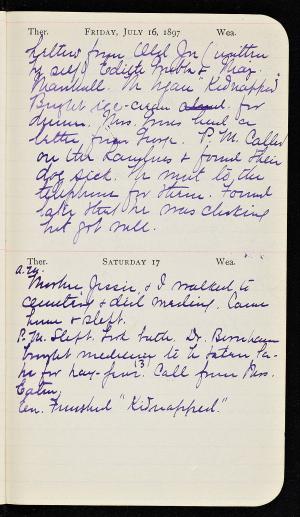 Ther. FRIDAY, JULY 16, 1897 Wea.
Letters from (written
to self) Edith &
Marshall. "Kidnapped"
ice-cream for
dinner. Mrs. had a
letter from P. M. Called
on the & found their
dog sick. the
telephone for them. Found
later that he was choking
but got well.
Ther. SATURDAY 17 Wea.
A.M.
Mother, Jessie, & I walked to
cemetery & did mending. Came
home & slept.
P.M. Slept. Took bath. Dr.
brought medicines to be taken
for hay-fever. (3) Call from Mrs.
Eaton.
Ev. Finished "Kidnapped."